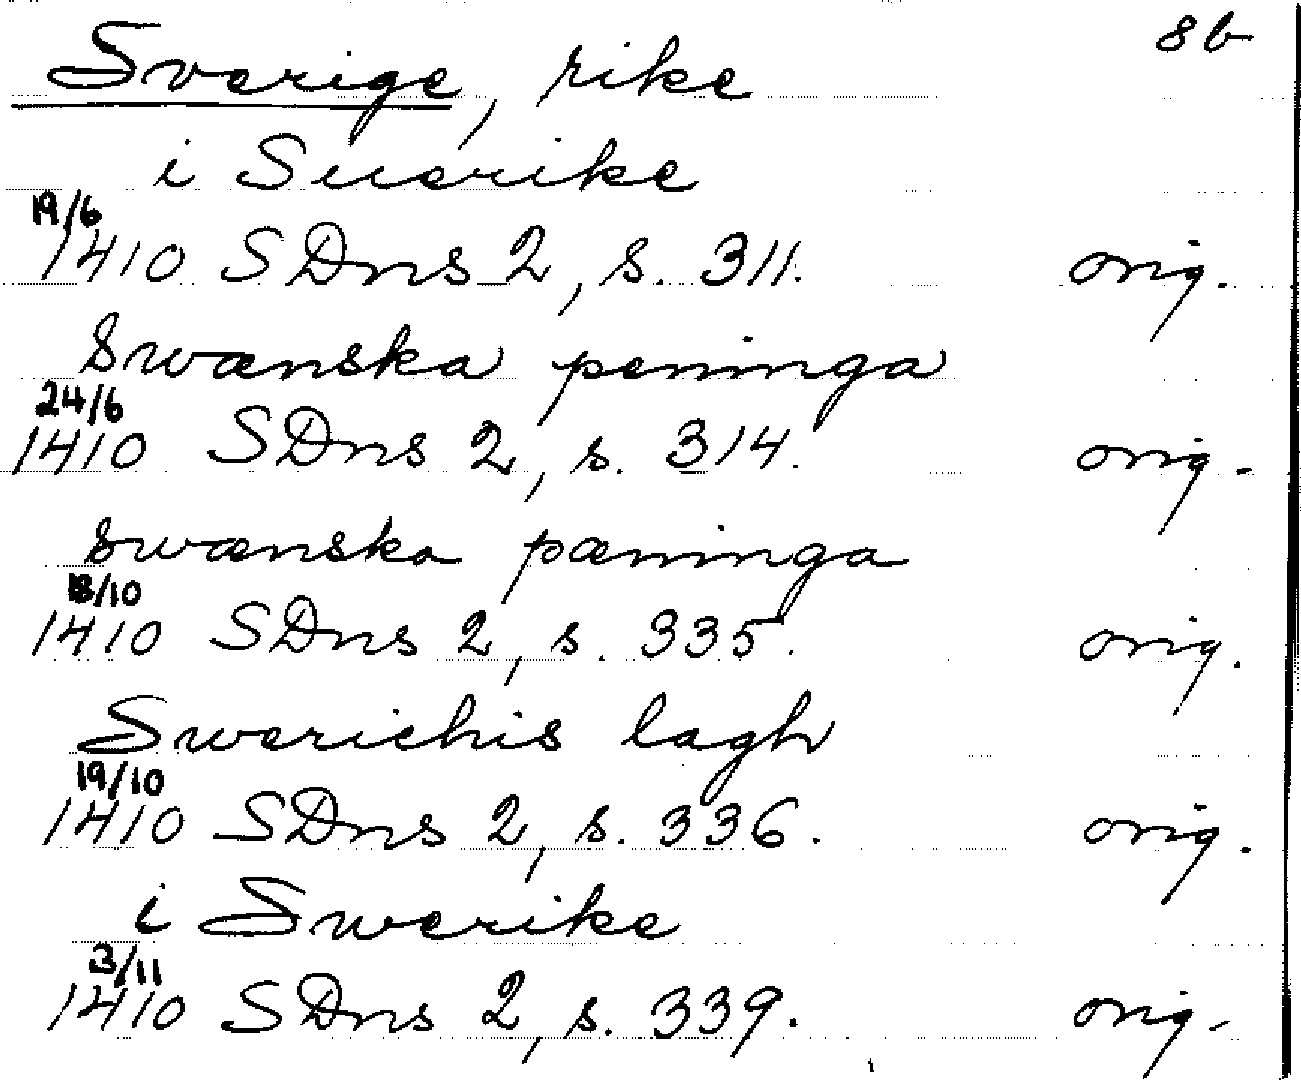 8b
Sverige, rike
i Suerike
19/6
1410 SDns 2, s. 311. orig.
Swænska peninga
24/6
1410 SDns 2, s. 314. orig.
swænska pæninga
18/10
1410 SDns 2, s. 335. orig.
Swerichis lagh
19/10
1410 SDns 2, s. 336. orig.
i Swerike
3/11
1410 SDns 2, s. 339. orig.